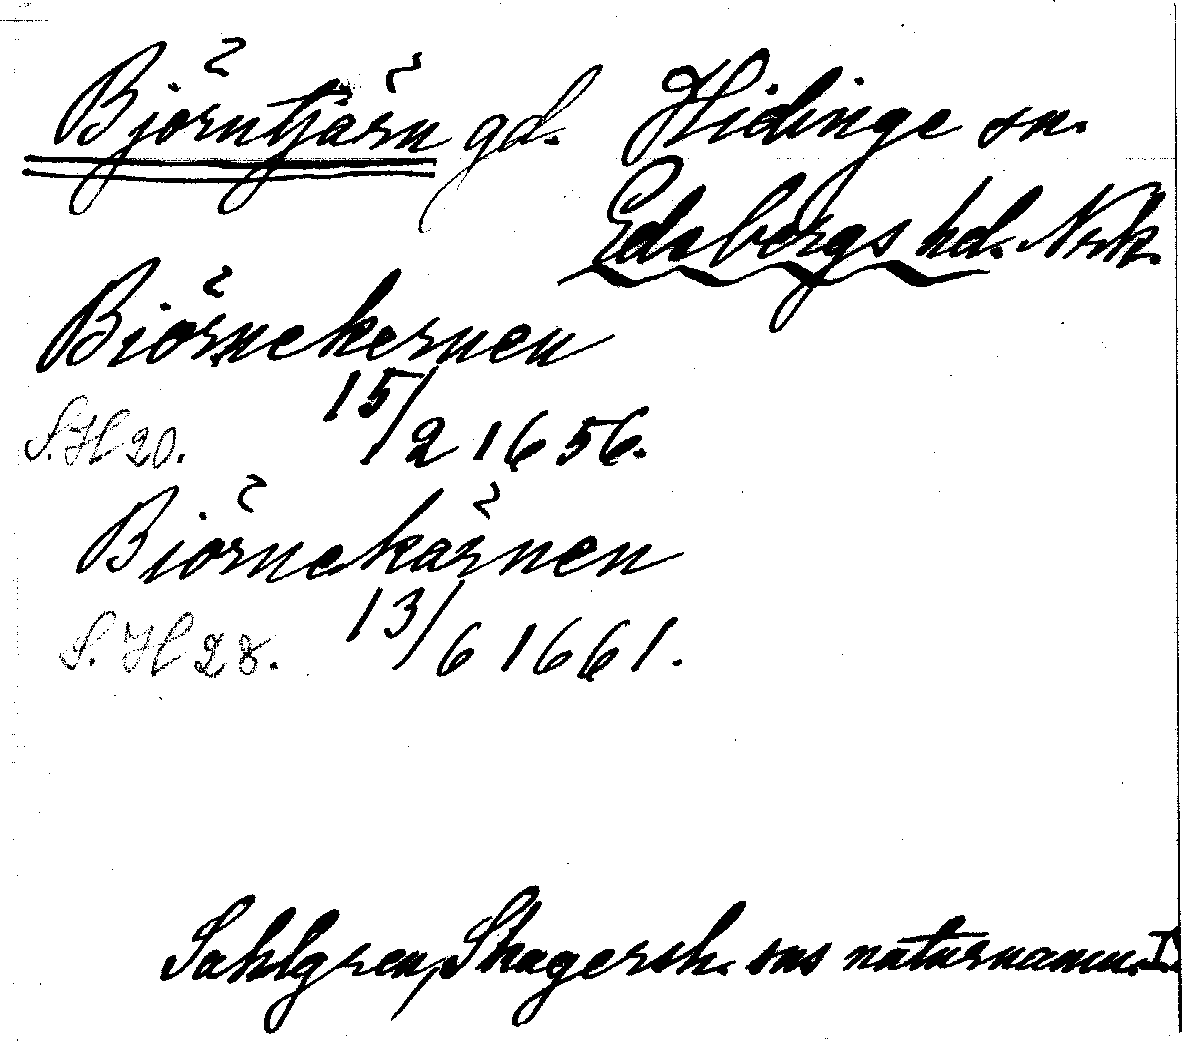 Björntjärn gd. Hidinge sn.
Edsbergs hd. Nrk.
Biörnekernen
S.H 20. 15/2 1656.
Biörnekärnen
S.H 28. 13/6 1661.
Sahlgren, Skagersh. sns naturnamn. I.